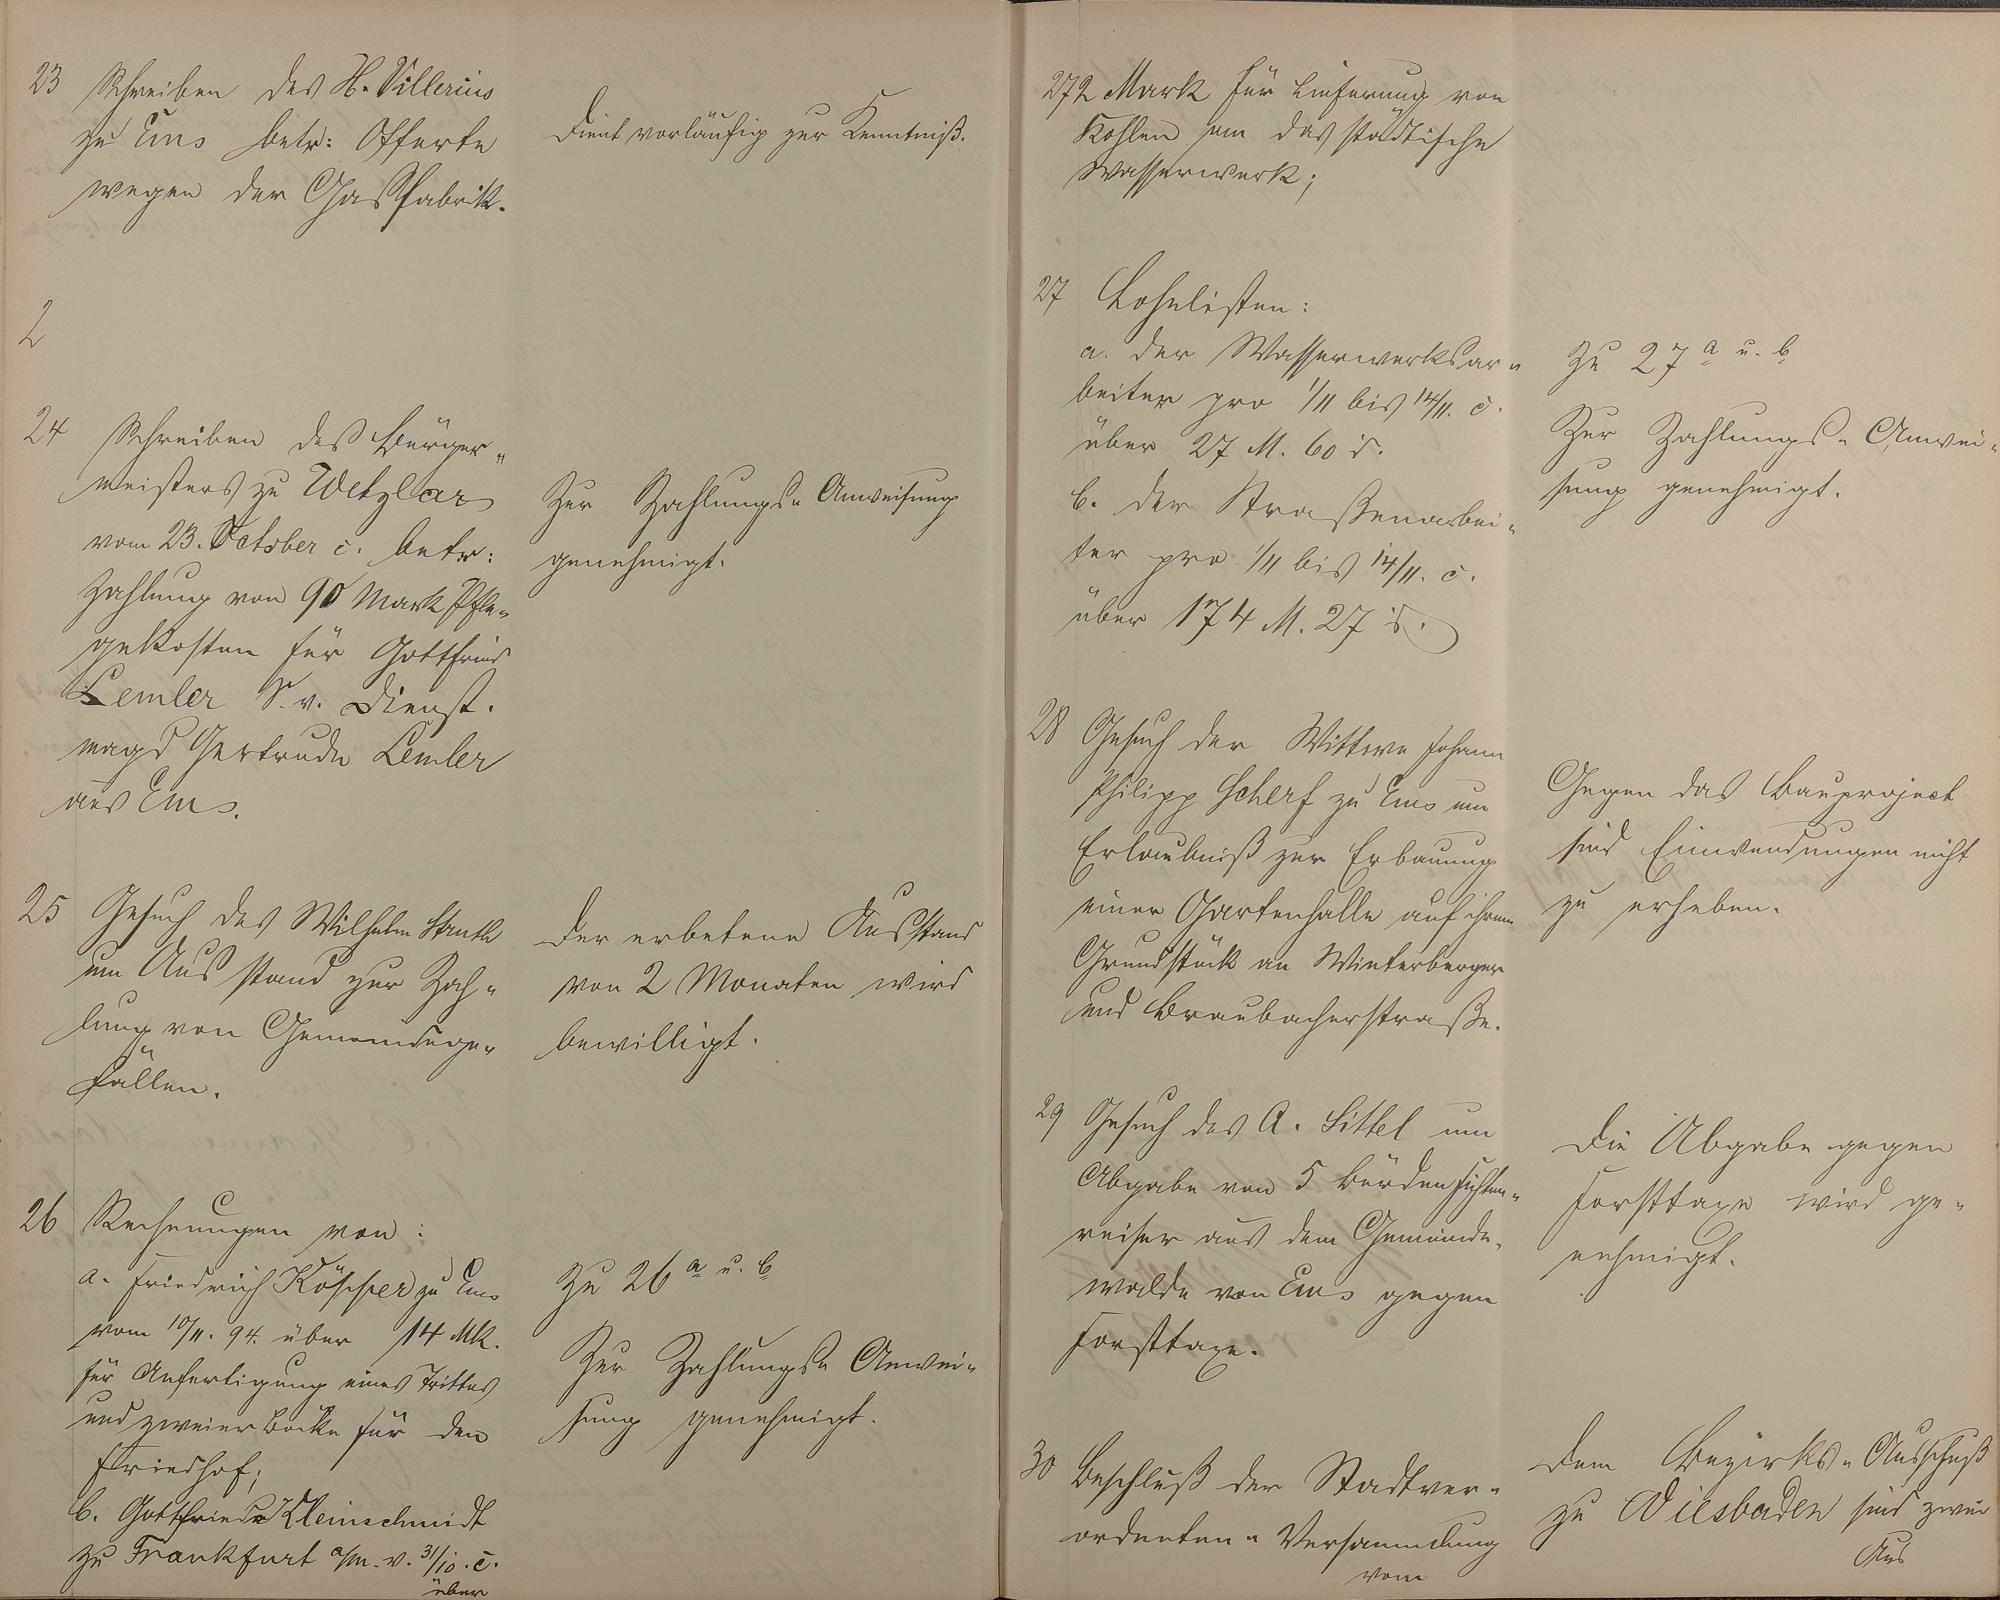 23 Schreiben des H. Villerius
zu Ems betr: Offerte
wegen der Gasfabrik.
Dient vorläufig zur Kenntniß.
2
24 Schreiben des Bürger-
meisters zu Wetzlar
vom 23. October c. betr:
Zahlung von 90 Mark Pfle-
gekosten für Gottfried
Lemler S. v. Dienst-
magd Gertrude Lemler
aus Ems.
Zur Zahlungs-Anweisung
genehmigt.
25 Gesuch des Wilhelm
um Ausstand zur Zah-
lung von Gemeindege-
fällen.
Der erbetene Ausstand
von 2 Monaten wird
bewilligt.
26 Rechnungen von:
a. Friedrich Köpper zu Ems
vom 10/11. 94. über 14 Mk.
für Anfertigung eines Trittes
und zweier Böcke für den
Friedhof;
b. Gottfried Kleinschmidt
zu Frankfurt a/M. v. 31/10. c.
über
Zu 26 a u. b
Zur Zahlungs-Anwei-
sung genehmigt.
272 Mark für Lieferung von
Kohlen an das städtische
Wasserwerk;
27 Lohnlisten:
a. der Wasserwerksar-
beiter pro 1/11 bis 14/11. c.
über 27 M. 60 d.
b. der Straßenarbei-
ter pro 1/11 bis 14/11. c.
über 174 M. 27 d.
Zu 27 a u. b
Zur Zahlungs-Anwei-
sung genehmigt.
28 Gesuch der Wittwe Johann
Philipp Scherf zu Ems um
Erlaubniß zur Erbauung
einer Gartenhalle auf ihrem
Grundstück an Winterberger
und Braubacherstraße.
Gegen das Bauproject
sind Einwendungen nicht
zu erheben.
29 Gesuch des A. Sittel um
Abgabe von 5 Bürden Fichten-
reiser aus dem Gemeinde-
walde von Ems gegen
Forsttaxe.
Die Abgabe gegen
Forsttaxe wird ge-
nehmigt.
30 Beschluß der Stadtver-
ordneten-Versammlung
vom
Dem Bezirks-Ausschuß
zu Wiesbaden sind zwei
Aus